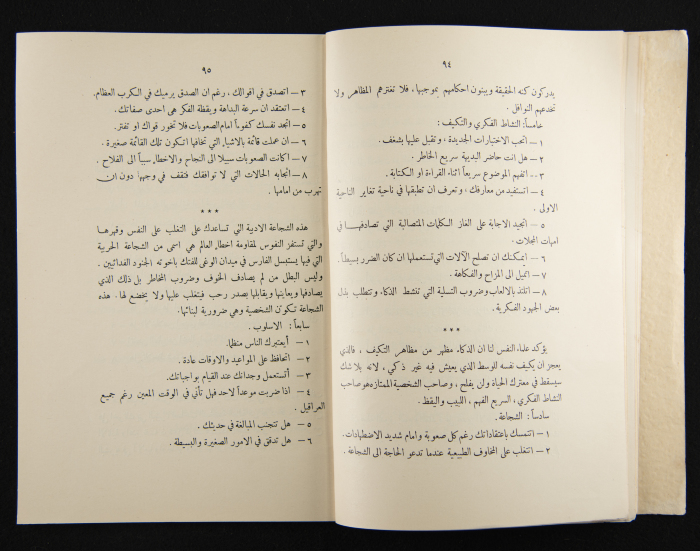 ٩٤
يدركون كنه الحقيقة ويبنون احكامهم بموجبها ، فلا تغترهم المظاهر ولا
تخدعهم النوافل .
خامساً : النشاط الفكري والتكيف :
١ – اتحب الاختبارات الجديدة ، وتقبل عليها بشغف .
٢ – هل انت حاضر البديهة سريع الخاطر .
٣ – اتفهم الموضوع سريعاً اثناء القراءة او الكتابة .
٤ – اتستفيد من معارفك ، وتعرف ان تطبقها في ناحية تغاير الناحية
الاولى .
٥ – اتجيد الاجابة على الغاز الكلمات المتصالبة التي تصادفها في
امهات المجلات .
٦ – ايمكنك ان تصلح الآلات التي تستعملها ان كان الضرر بسيطاً .
٧ – اتميل الى المزاح والفكاهة .
٨ – اتلتذ بالالعاب وضروب التسلية التي تنشط الذكاء وتتطلب بذل
بعض الجهود الفكرية .
***
يؤكد علماء النفس لنا ان الذكاء مظهر من مظاهر التكيف ، فالذي
يعجز ان يكيف نفسه للوسط الذي يعيش فيه غير ذكي ، لانه بلا شك
سيسقط في معترك الحياة ولن يفلح ، وصاحب الشخصية الممتازة هو صاحب
النشاط الفكري ، السريع الفهم ، اللبيب واليقظ .
سادساً : الشجاعة .
١ – اتتمسك باعتقاداتك رغم كل صعوبة وامام شديد الاضطهادات .
٢ – اتتغلب على المخاوف الطبيعية عندما تدعو الحاجة الى الشجاعة .
٩٥
٣ – اتصدق في اقوالك ، رغم ان الصدق يرميك في الكرب العظام .
٤ – اتعتقد ان سرعة البداهة ويقظة الفكر هي احدى صفاتك .
٥ – اتجد نفسك كفوءاً امام الصعوبات فلا تخور قواك او تفتر .
٦ – ان عملت قائمة بالاشياء التي تخافها اتكون تلك القائمة صغيرة .
٧ – اكانت الصعوبات سبيلا الى النجاح والاخطار سبباً الى الفلاح .
٨ – اتجابه الحالات التي لا توافقك فتقف في وجهها دون ان
تهرب من امامها .
***
هذه الشجاعة الادبية التي تساعدك على التغلب على النفس وقهرها
والتي تستفز النفوس لمقاومة اخطار العالم هي اسمى من الشجاعة الحربية
التي فيها يستبسل الفارس في ميدان الوغى للفتك باخوته الجنود الفدائيين .
وليس البطل من لم يصادف الخوف وضروب المخاطر بل ذلك الذي
يصادفها ويعاينها ويقابلها بصدر رحب فيتغلب عليها ولا يخضع لها . هذه
الشجاعة تكون الشخصية وهي ضرورية لبنائها .
سابعاً : الاسلوب .
١ – أيعتبرك الناس منظما .
٢ – اتحافظ على المواعيد والاوقات عادة .
٣ – أتستعمل وجدانك عند القيام بواجباتك .
٤ – اذا ضربت موعداً لاحد فهل تأتي في الوقت المعين رغم جميع
العراقيل .
٥ – هل تتجنب المبالغة في حديثك .
٦ – هل تدقق في الامور الصغيرة والبسيطة .